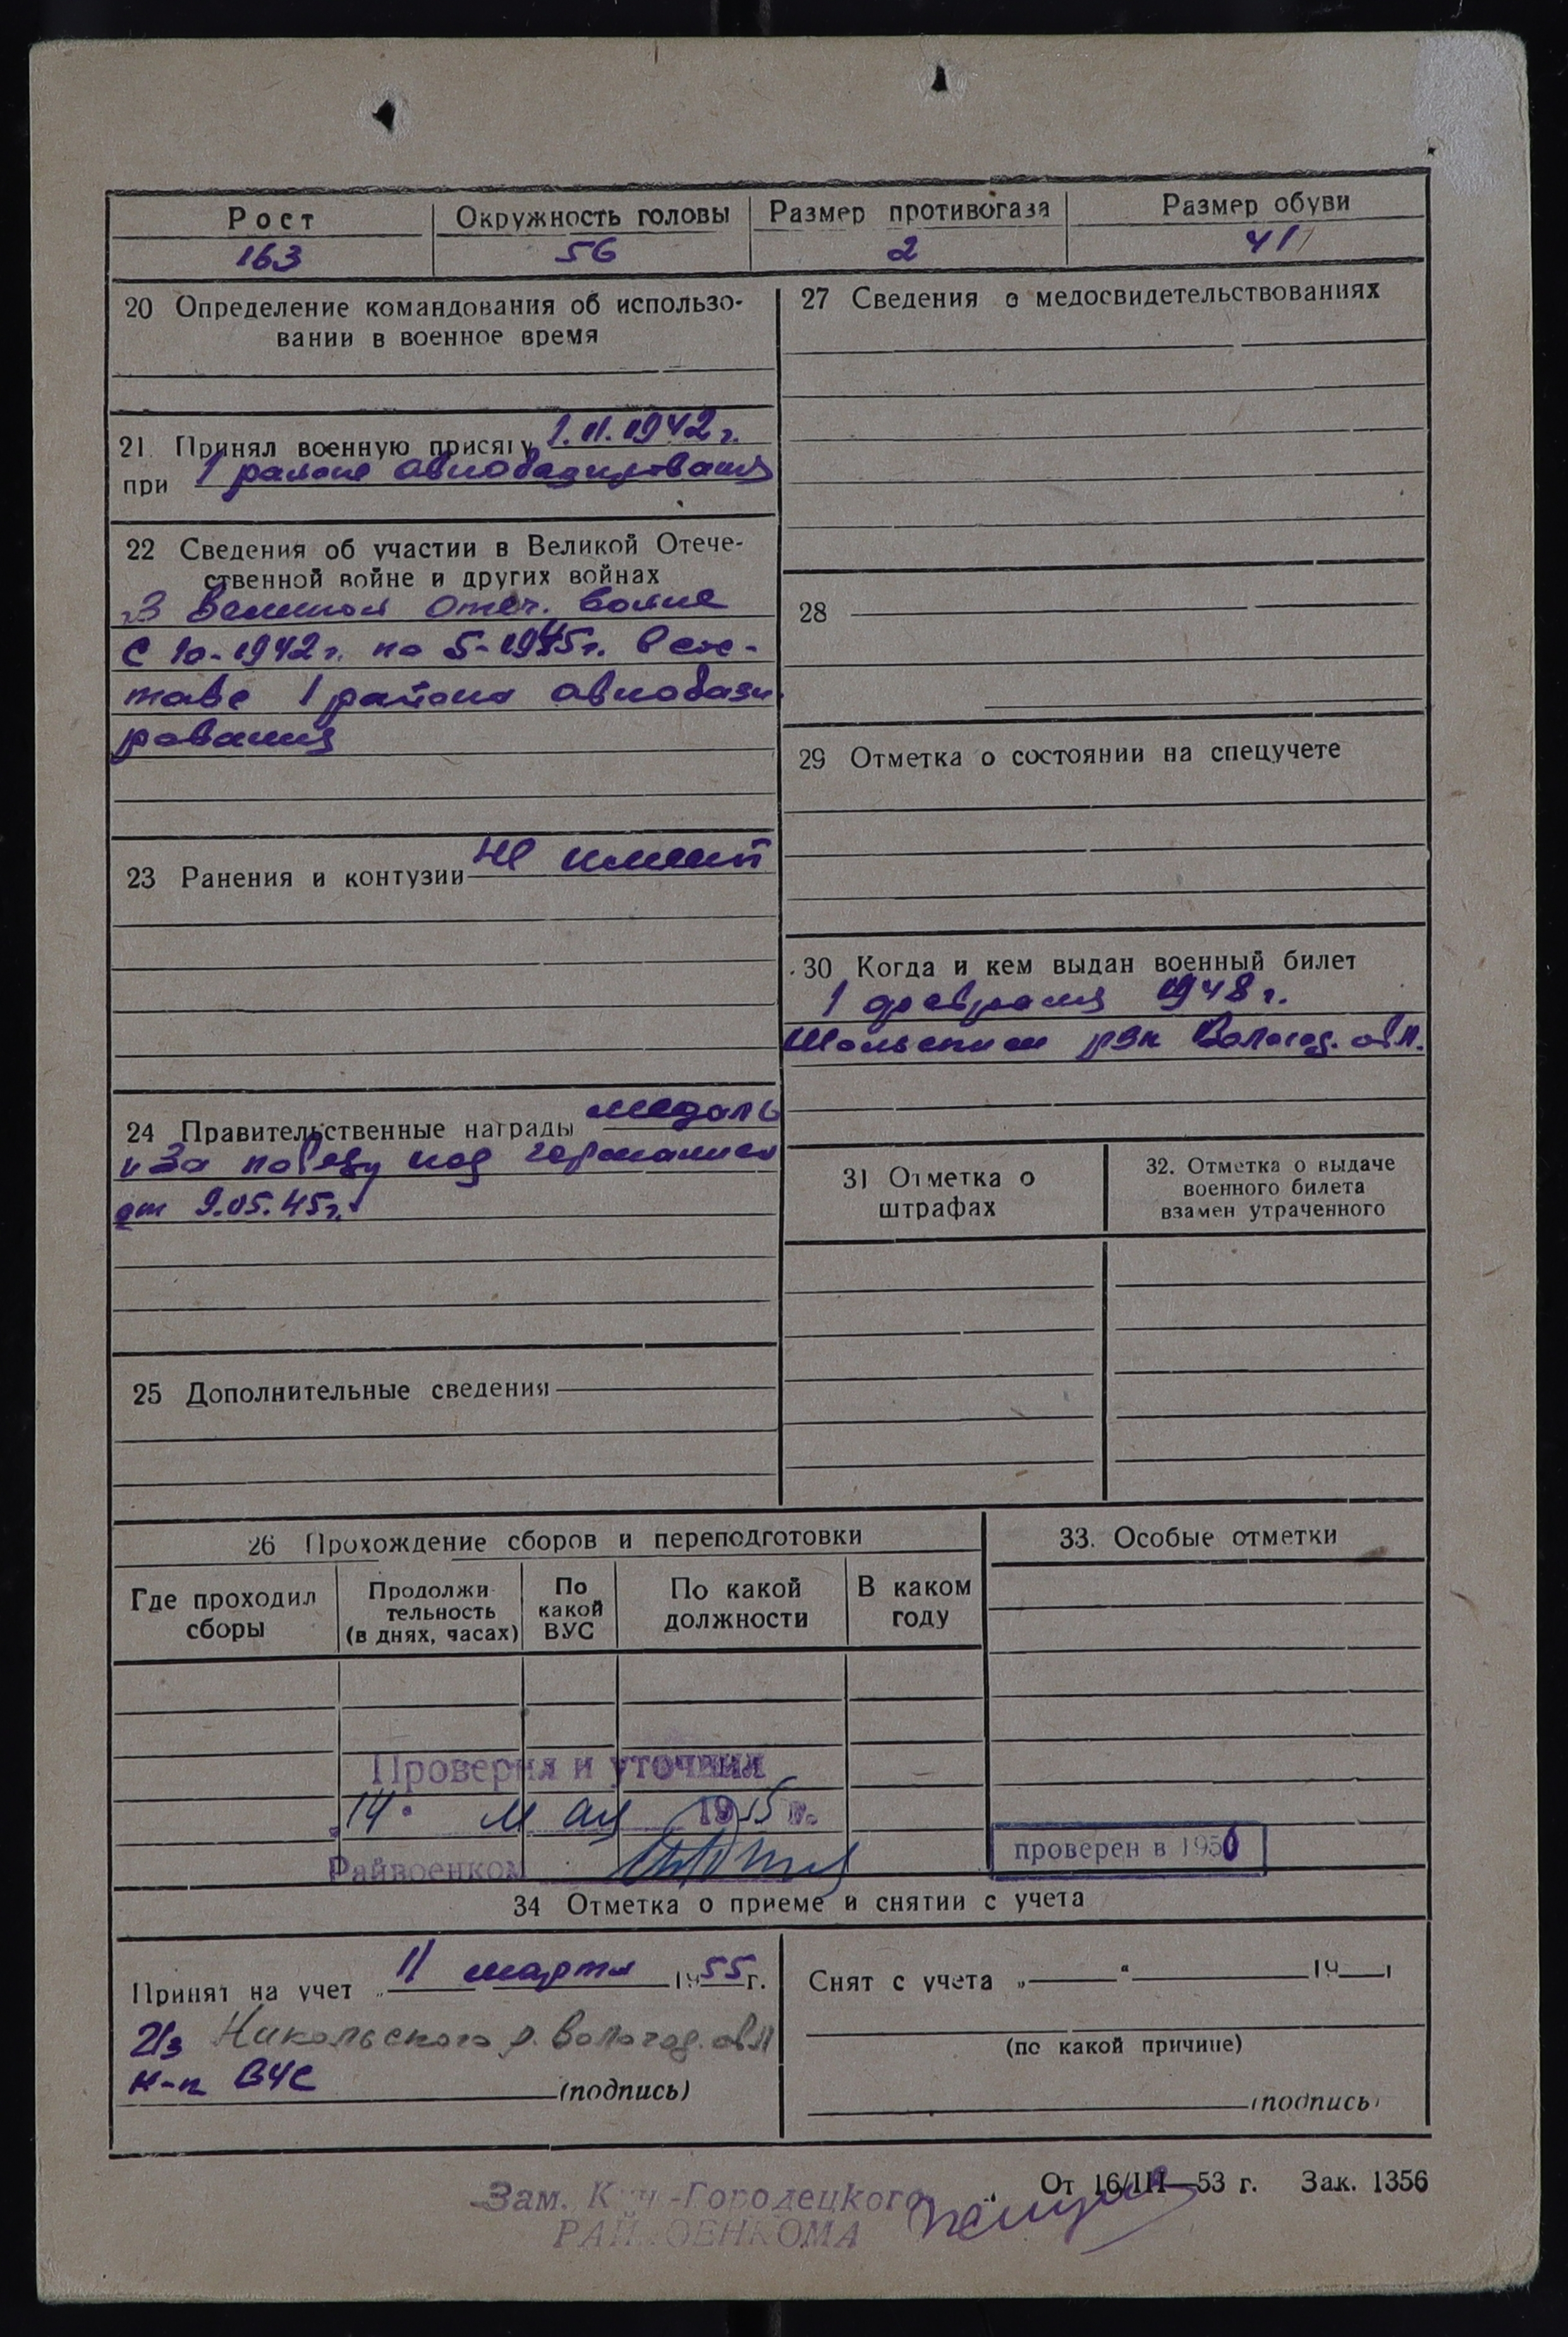 Рост Окружность головы Размер противогаза Размер обуви
163 56 2 41
20 Определение командования об использо-
вании в военное время
21. Принял военную присягу 1.11.1942 г.
при 1 районе авиабазирования
22 Сведения об участии в Великой Отече-
ственной войне и других войнах
В Великой Отеч. войне
с 10-1942 г. по 5-1945 г. в сос-
таве 1 района авиабази
рования
23 Ранения и контузии не имеет
24 Правительственные награды медаль
"За победу над германией
от 9.05.45 г.
25 Дополнительные сведения
27 Сведения о медосвидетельствованиях
28
29 Отметка о состоянии на спецучете
30 Когда и кем выдан военный билет
1 февраля 1948 г.
Шольским рвк Вологод. обл.
31 Отметка о
штрафах
32. Отметка о выдаче
военного билета
взамен утраченного
26 Прохождение сборов и переподготовки
Где проходил
сборы
Продолжи-
тельность
(в днях, часах)
По
какой
ВУС
По какой
должности
В каком
году
33. Особые отметки
Проверил и уточнил
14 мая 1955 г.
Райвоенком
проверен в 1956
34 Отметка о приеме и снятии с учета
Принят на учет „ 11 марта 1955 г.
Из Никольского р. Вологод. обл
н-к ВУС (подпись)
Снят с учета „ “ 19 г
(по какой причине)
(подпись)
От 16/III—53 г. Зак. 1356
Зам. Кич-Городецкого
РАЙВОЕНКОМА